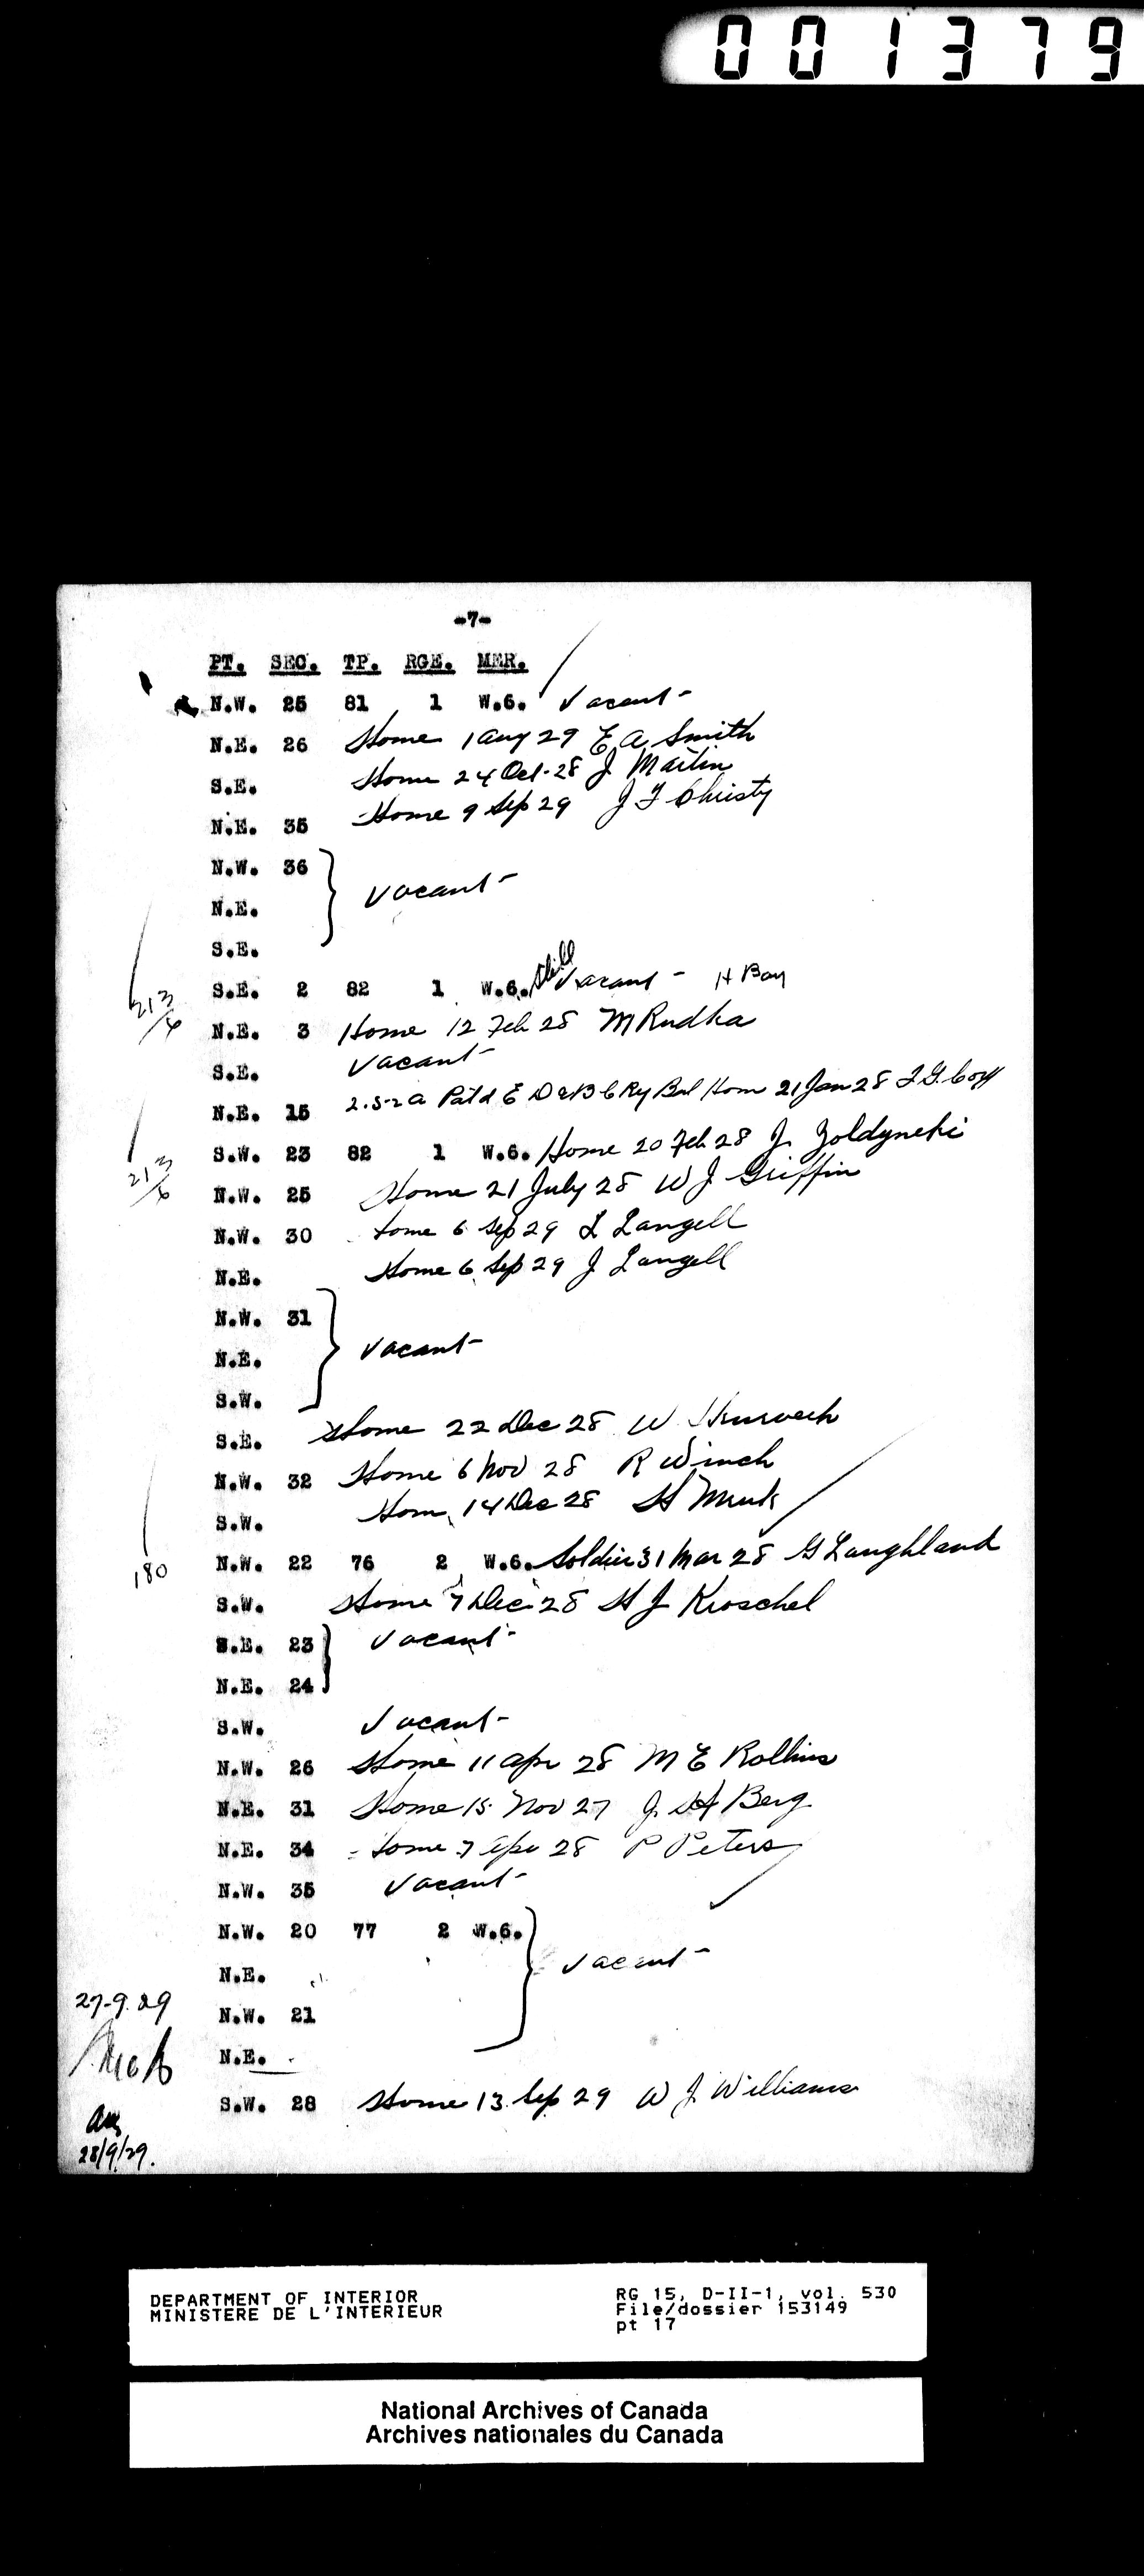 001379
-7-
PT. SEC. TP. RGE. MER.
N.W. 25 81 1 W.6. Vacant
N.E. 26 Home 1 Aug 29 E A Smith
S.E. Home 24 Oct. 28 J Martin
N.E. 35 Home 9 Sep 29 J F Christy
N.W. 36
N.E. Vacant
S.E.
S.E. 2 82 1 W.6. Still Vacant - H Bay
213/6
N.E. 3 Home 12 Feb 28 M Rudka
S.E. Vacant
N.E. 15 2.52 a Pat'd E D & B C Ry Bal Hom 21 Jan 28
S.W. 23 82 1 W.6. Home 20 Feb 28 J.
213/6
N.W. 25 Home 21 July 28 W J Griffin
N.W. 30 Home 6 Sep 29 L Langell
N.E. Home 6 Sep 29 J Langell
N.W. 31
N.E. Vacant
S.W.
S.E. Home 22 Dec 28 W
N.W. 32 Home 6 Nov 28 R Winch
S.W. Hom 14 Dec 28 H
N.W. 22 76 2 W.6. Soldier 31 Mar 28 G Laughland
180
S.W. Home 7 Dec 28 H J Kroschel
S.E. 23 Vacant
N.E. 24
S.W. Vacant
N.W. 26 Home 11 Apr 28 M E Rollins
N.E. 31 Home 15 Nov 27 J. H Berg
N.E. 34 Home 7 Apr 28 P Peters
N.W. 35 Vacant
N.W. 20 77 2 W.6.
N.E. Vacant
27-9.29
N.W. 21
N.E.
S.W. 28 Home 13 Sep 29 W J Williams
28/9/29.
DEPARTMENT OF INTERIOR
MINISTERE DE L'INTERIEUR
RG 15, D-II-1, vol. 530
File/dossier 153149
pt 17
National Archives of Canada
Archives nationales du Canada